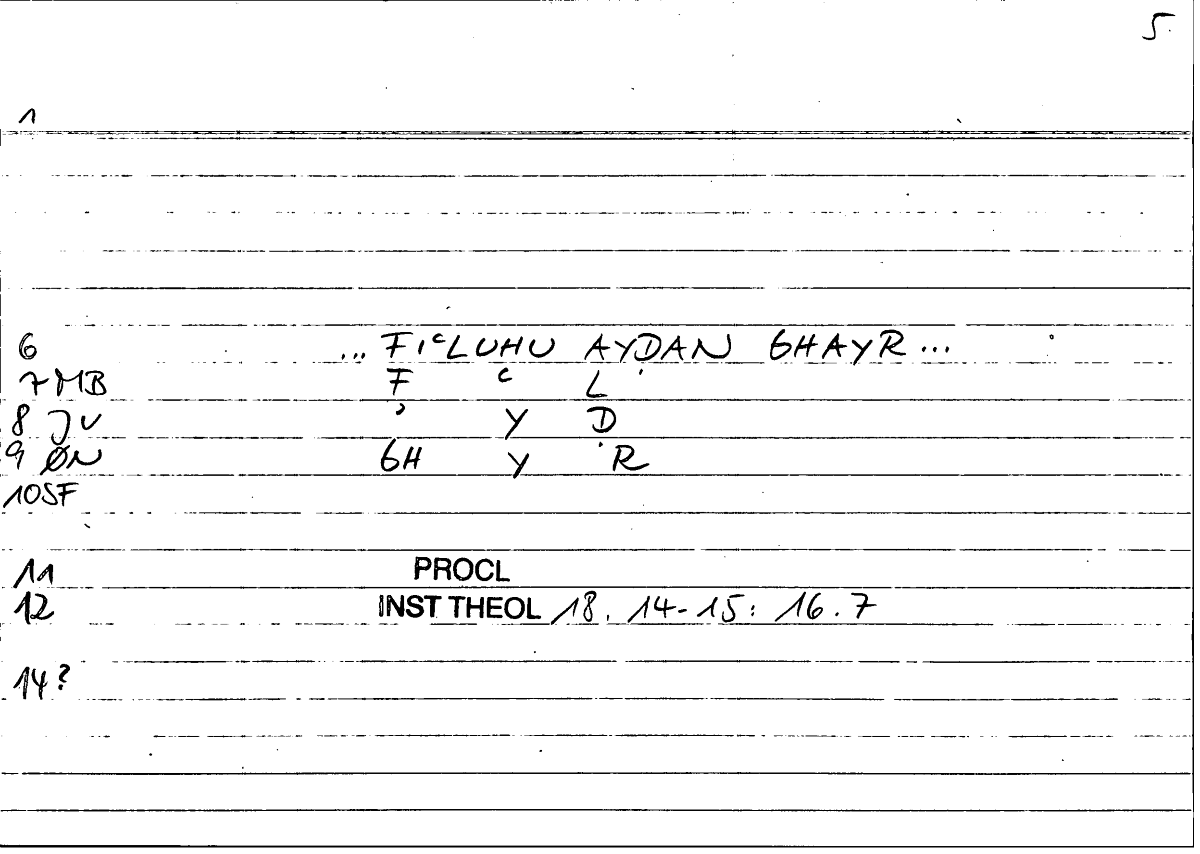 5
1
6 ... FIᶜLUHU AYḌAN GHAYR ...
7 MB F ᶜ L
8 JV ʾ Y Ḍ
9 ØN GH Y R
10 SF
11 PROCL
12 INST THEOL 18. 14-15: 16.7
14?